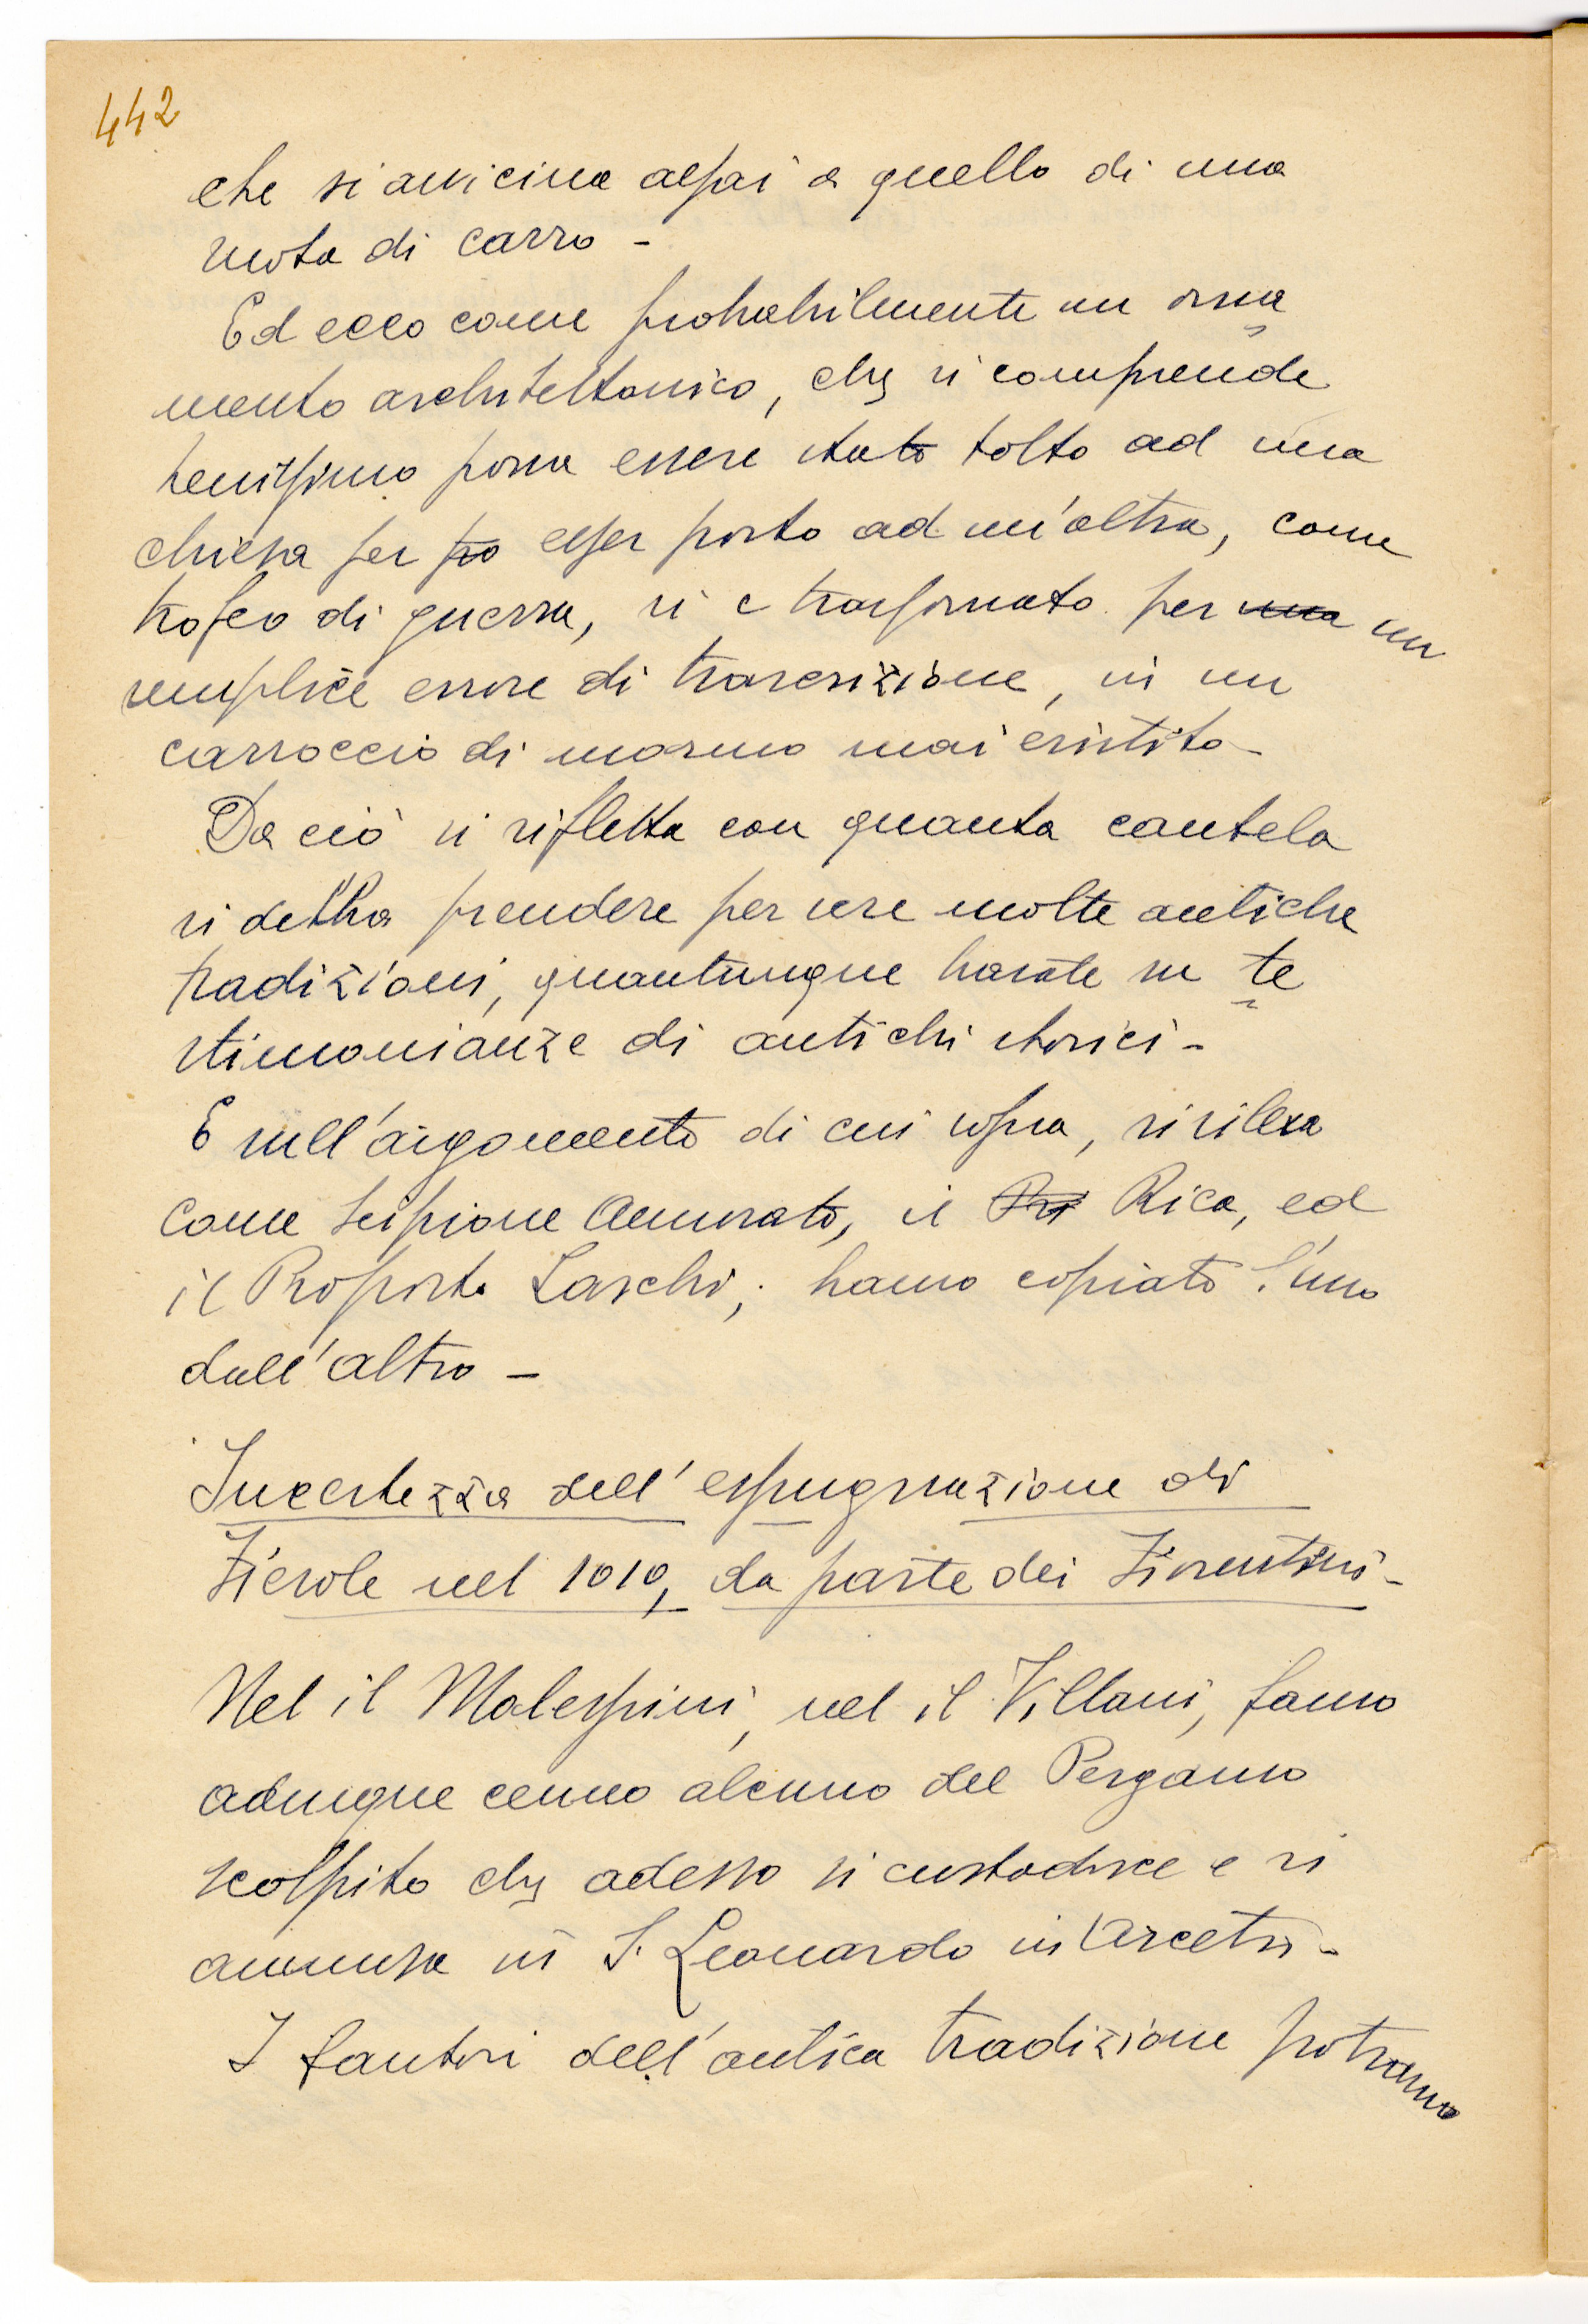 442
che si avvicina assai a quello di una
ruota di carro -
Ed ecco come probabilmente un orna
mento architettonico, che si comprende
benissimo possa essere stato tolto ad una
chiesa per po esser posto ad un'altra, come
trofeo di guerra, si è trasformato per una un
semplice errore di trascrizione, in un
carroccio di marmo mai esistito -
Da ciò si rifletta con quanta cautela
si debba prendere per vere molte antiche
tradizioni, quantunque basate su te
stimonianze di antichi storici -
E sull'argomento di cui sopra, si rileva
come Scipione Ammirato, il Ri Rica, ed
il Proposto Laschi, hanno copiato l'uno
dall'altro -
Incertezza dell'espugnazione di
Fiesole nel 1010, da parte dei Fiorentini -
Nel il Malespini, nel il Villani, fanno
adunque cenno alcuno del Pergamo
scolpito che adesso si custodisce e si
ammira in S. Leonardo in Arcetri -
I fautori dell'antica tradizione potranno